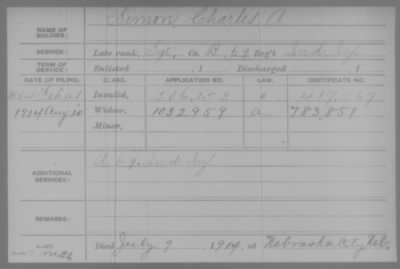 NAME OF SOLDIER: Simon, Charles A.
SERVICE: Late rank, Sgt, Co. B, 69 Reg't Ind. Inf
TERM OF SERVICE: Enlisted , 1 Discharged , 1
DATE OF FILING. CLASS. APPLICATION NO. LAW. CERTIFICATE NO.
Feb Invalid, 506,153
1914 Aug 20 Widow, 1032959 a 783,851
Minor,
ADDITIONAL SERVICES: Ind. Inf
REMARKS:
Died July 9, 1914, at Nebraska City Neb.